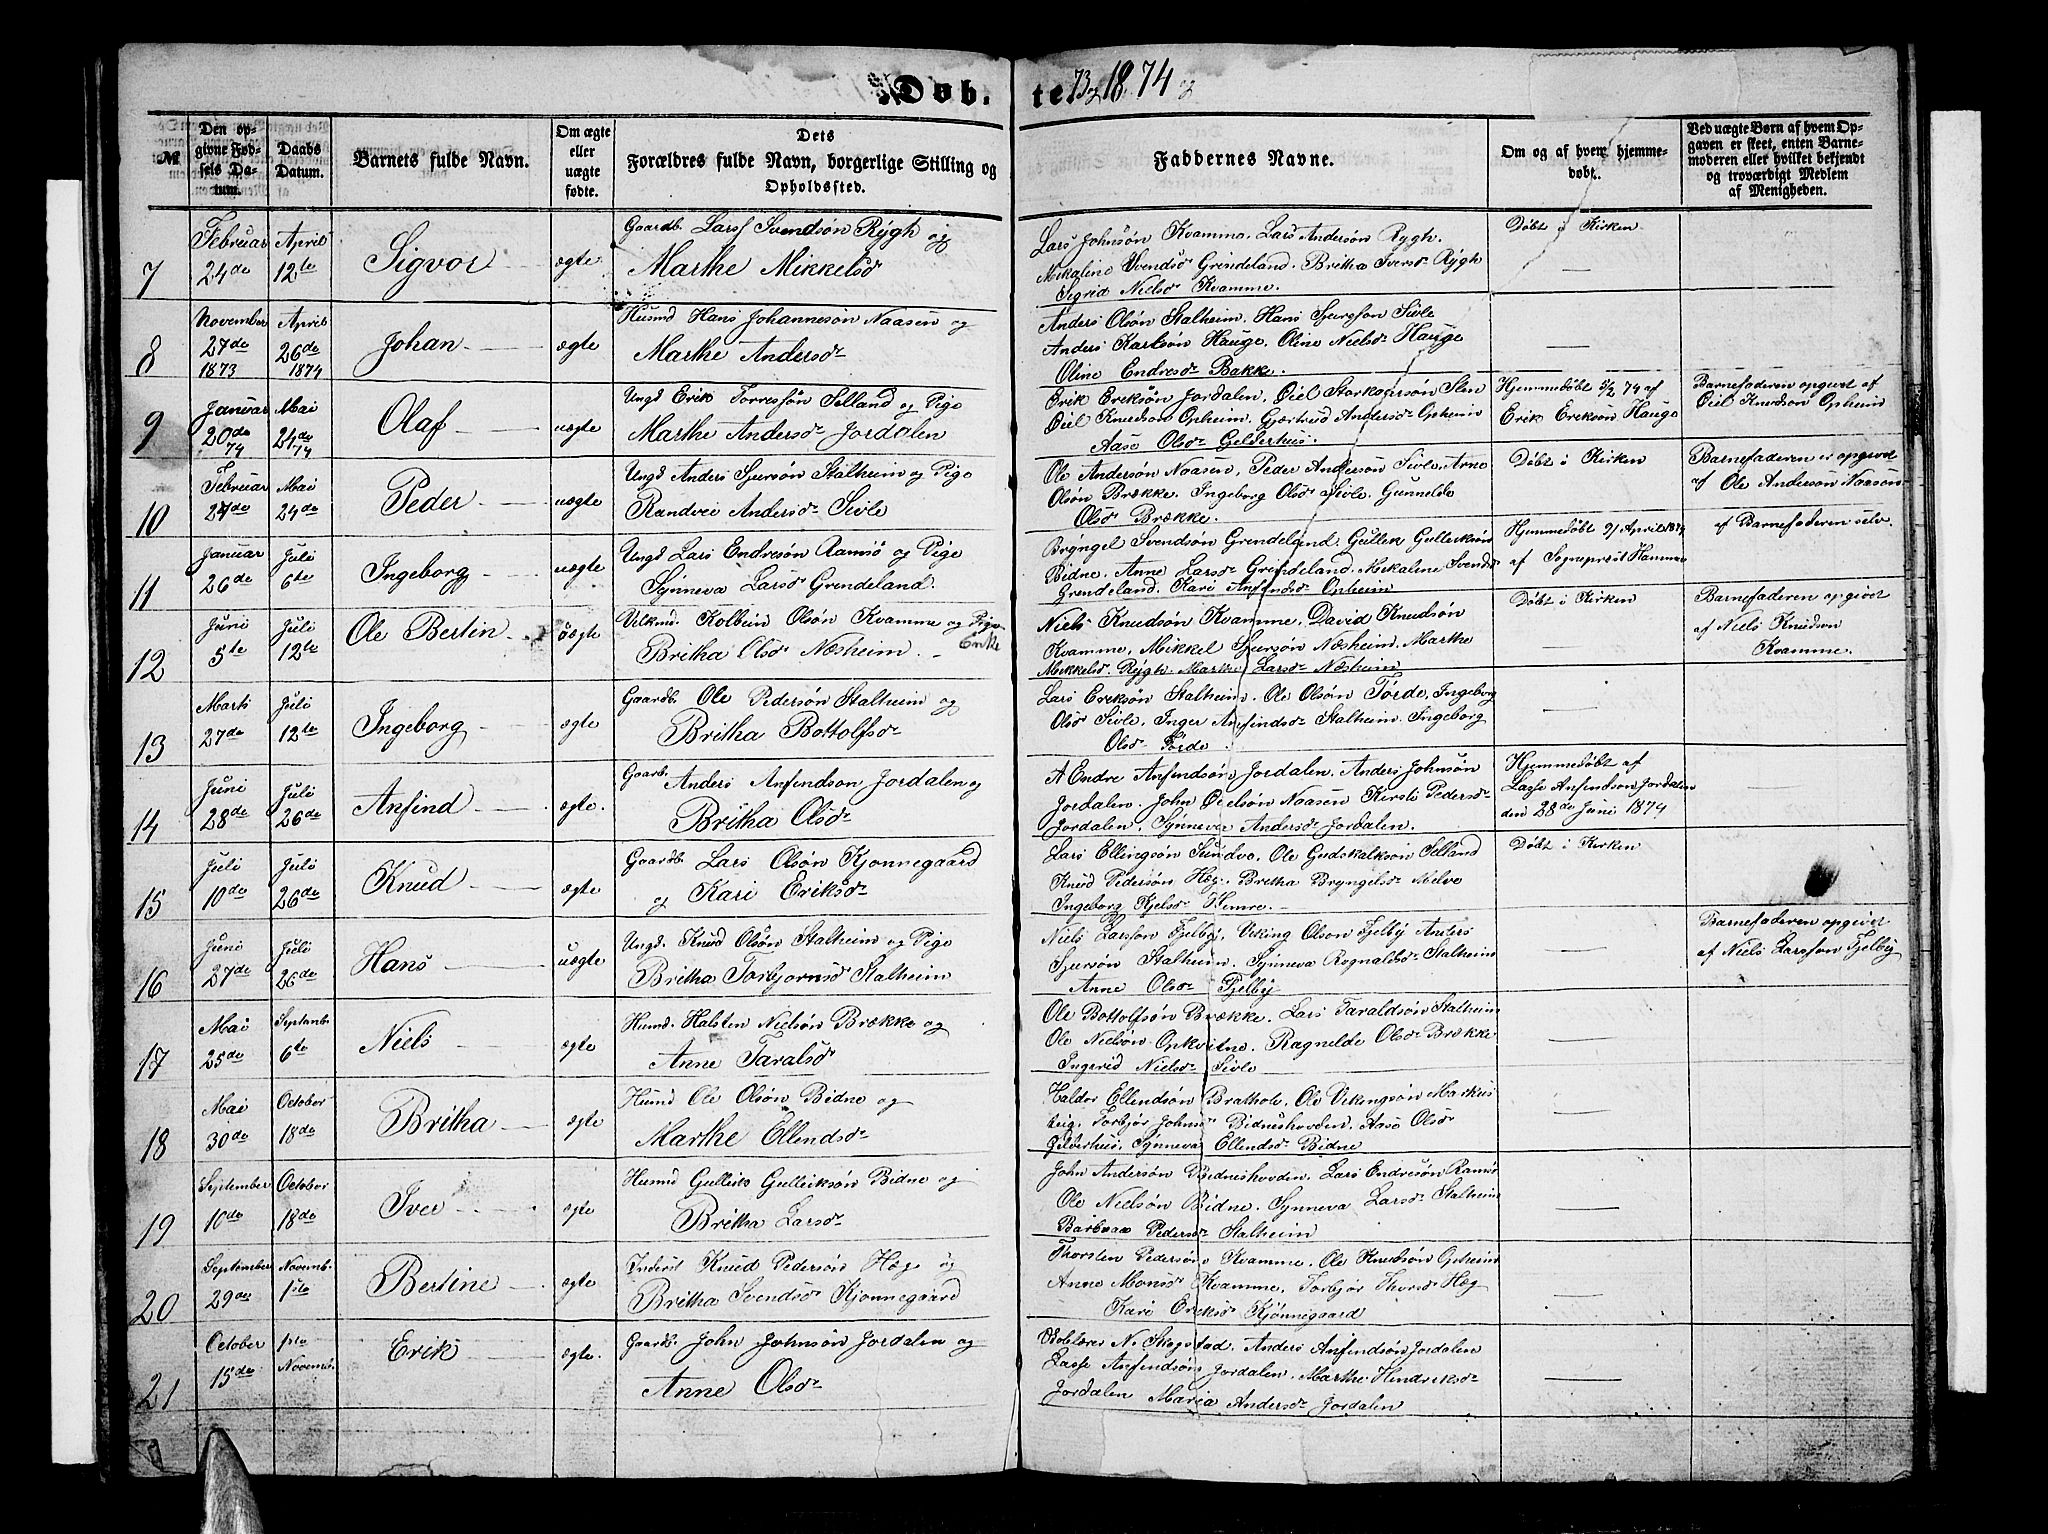 Døb-
te 73 og 1874
№
Den op-
givne Fød-
sels Da-
tum.
Daabs
Datum.
Barnets fulde Navn.
Om ægte
eller
uægte
fødte.
Dets
Forældres fulde Navn, borgerlige Stilling og
Opholdssted.
Faddernes Navne.
Om og af hvem hjemme-
døbt.
Ved uægte Børn af hvem Op-
gaven er skeet, enten Barne-
moderen eller hvilket bekjendt
og troværdigt Medlem
af Menigheden.
7
Februar
24de
April
12te
Sigvor
ægte
Gaardb. Lars Svendsøn Rygh og
Marthe Mikkelsdr
Lars Johnsøn Kvamme. Lars Andersøn Rygh.
Mikaline Svendsdr Grindeland. Britha Iversdr Rygh
Sigrid Nielsdr Kvamme.
Døbt i Kirken
8
November
27de
1873
April
26de
1874
Johan
ægte
Husmd Hans Johannesøn Naasen og
Marthe Andersdr
Anders Olsøn Stalheim. Hans Sjursson Sivle
Anders Karlsøn Hauge. Oline Nielsdr Hauge
Oline Endresdr Bakke.
9
Januar
20de
74
Mai
24de
74
Olaf
uægte
Ungd Erik Torressøn Selland og Pige
Marthe Andersdr Jordalen
Erik Eriksøn Jordalen, Øiel
Øiel Knudsøn Opheim, Gjærtrud Andersdr Opheim
Aase Olsdr Gelderhus.
Hjemmedøbt 5/2 74 af
Erik Erikson Hauge
Barnefaderen opgivet af
Øiel Knudson Opheim
10
Februar
Mai
24de
Peder
uægte
Ungd Anders Sjursøn Stalheim og Pige
Randvei Andersdr Sivle
Ole Andersøn Naasen, Peder Andersøn Sivle, Arne
Olsøn Brække. Ingeborg Olsdr Sivle. Gunnelde
Olsdr Brække.
Døbt i Kirken
Barnefaderen er opgivet
af Ole Anderson Naasen
11
Januar
26de
Juli
6te
Ingeborg
uægte
Ungd Lars Endresøn Ramsø og Pige
Synneva Larsdr Grendeland.
Bryngel Svendsøn Grendeland. Gullek Gulleiksøn
Bidne. Anne Larsdr Grendeland. Mikaline Svendsdr
Grendeland. Kari Anfindsdr Opheim
Hjemmedøbt 9/ April 1874
af Sognepræst Hamme
af Barnefaderen selv.
12
Juni
5te
Juli
12te
Ole Bertin
uægte
Kolbein Olsøn Kvamme og Pige
Enke
Britha Olsdr Næsheim.
Niels Knudsøn Kvamme, David Knudsøn
Kvamme, Mikkel Sjursøn Næsheim. Marthe
Mikkelsdr Rygh. Marthe Larsdr Næsheim
Døbt i Kirken
Barnefaderen opgivet
af Niels Knudson
Kvamme.
13
Marts
27de
Juli
12te
Ingeborg
ægte
Gaardb. Ole Pedersøn Stalheim og
Britha Bottolfsdr
Lars Eriksøn Stalheim. Ole Olsøn Førde, Ingeborg
Olsdr Sivle, Inger Anfindsdr Stalheim. Ingeborg
Olsdr Førde
14
Juni
28de
Juli
26de
Anfind
ægte.
Gaarb. Anders Anfendson Jordalen og
Britha Olsdr
Endre Anfendsøn Jordalen, Anders Johnsøn
Jordalen. John Øielsøn Naasen Kirsti Pedersdr
Jordalen, Synneva Andersdr Jordalen.
Hjemmedøbt af
Lasse Anfendson Jordalen
den 28de Juni 1874
15
Juli
10de
Juli
26de
Knud
ægte
Gaardb. Lars Olsøn Kjonnegaard
og Kari Eriksdr
Lars Ellingsøn Sundve. Ole Gudskalksøn Selland
Knud Pedersøn Hæg. Britha Bryngelsdr Melve
Ingeborg Kjelsdr Hemre.
Døbt i Kirken
16
Juni
27de
Juli
26de
Hans
uægte
Ungd. Knud Olsøn Stalheim og Pige
Britha Torbjornsdr Stalheim
Niels Larsson Fjelby, Viking Olson Fjelby Anders
Sjursøn Stalheim. Synneva Rognaldsdr Stalheim
Anne Olsdr Fjelby
Barnefaderen opgivet
af Niels Larsson Fjelby
17
Mai
25de
Septemb.
6te
Niels
ægte
Husmd. Halsten Nielsøn Brække og
Anne Taralsdr
Ole Bottolfsøn Brække. Lars Taraldsøn Stalheim
Ole Nielsøn Opkvitne. Ragnelde Olsdr Brække
Ingerid Nielsdr Sivle
18
Mai
30de
October
18de
Britha
ægte
Husmd Ole Olsøn Bidne og
Marthe Ellendsdr
Haldor Ellendsøn Brathole. Ole Vikingsøn Markus
teig. Torbjør Johnsdr Bidneshovden. Aase Olsdr
Gilderhus. Synneva Ellendsdr Bidne
19
September
10de
October
18de
Iver
ægte
Husmd Gulleik Gulleiksøn Bidne og
Britha Larsdr
John Andersøn Bidneshovden. Lars Endresøn Ramsø
Ole Nielsøn Bidne. Synneva Larsdr Stalheim
Barbraa Pedersdr Stalheim
20
September
29de
Novemb.
1ste
Bertine
ægte
Inderst Knud Pedersøn Hæg og
Britha Svendsdr Kjonnegaard
Thorsten Pedersøn Kvamme. Ole Knudsøn Opheim
Anne Monsdr Kvamme. Torbjør Thorsdr Hæg
Kari Eriksdr Kjønnegaard
21
October
15de
1ste
Novemb.
Erik
ægte.
Gaardb. John Johnsøn Jordalen og
Anne Olsdr
Skolelærer N. Skogstad. Anders Anfindsøn Jordalen
Lasse Anfendsøn Jordalen. Marthe Hendriksdr
Jordalen Maria Andersdr Jordalen